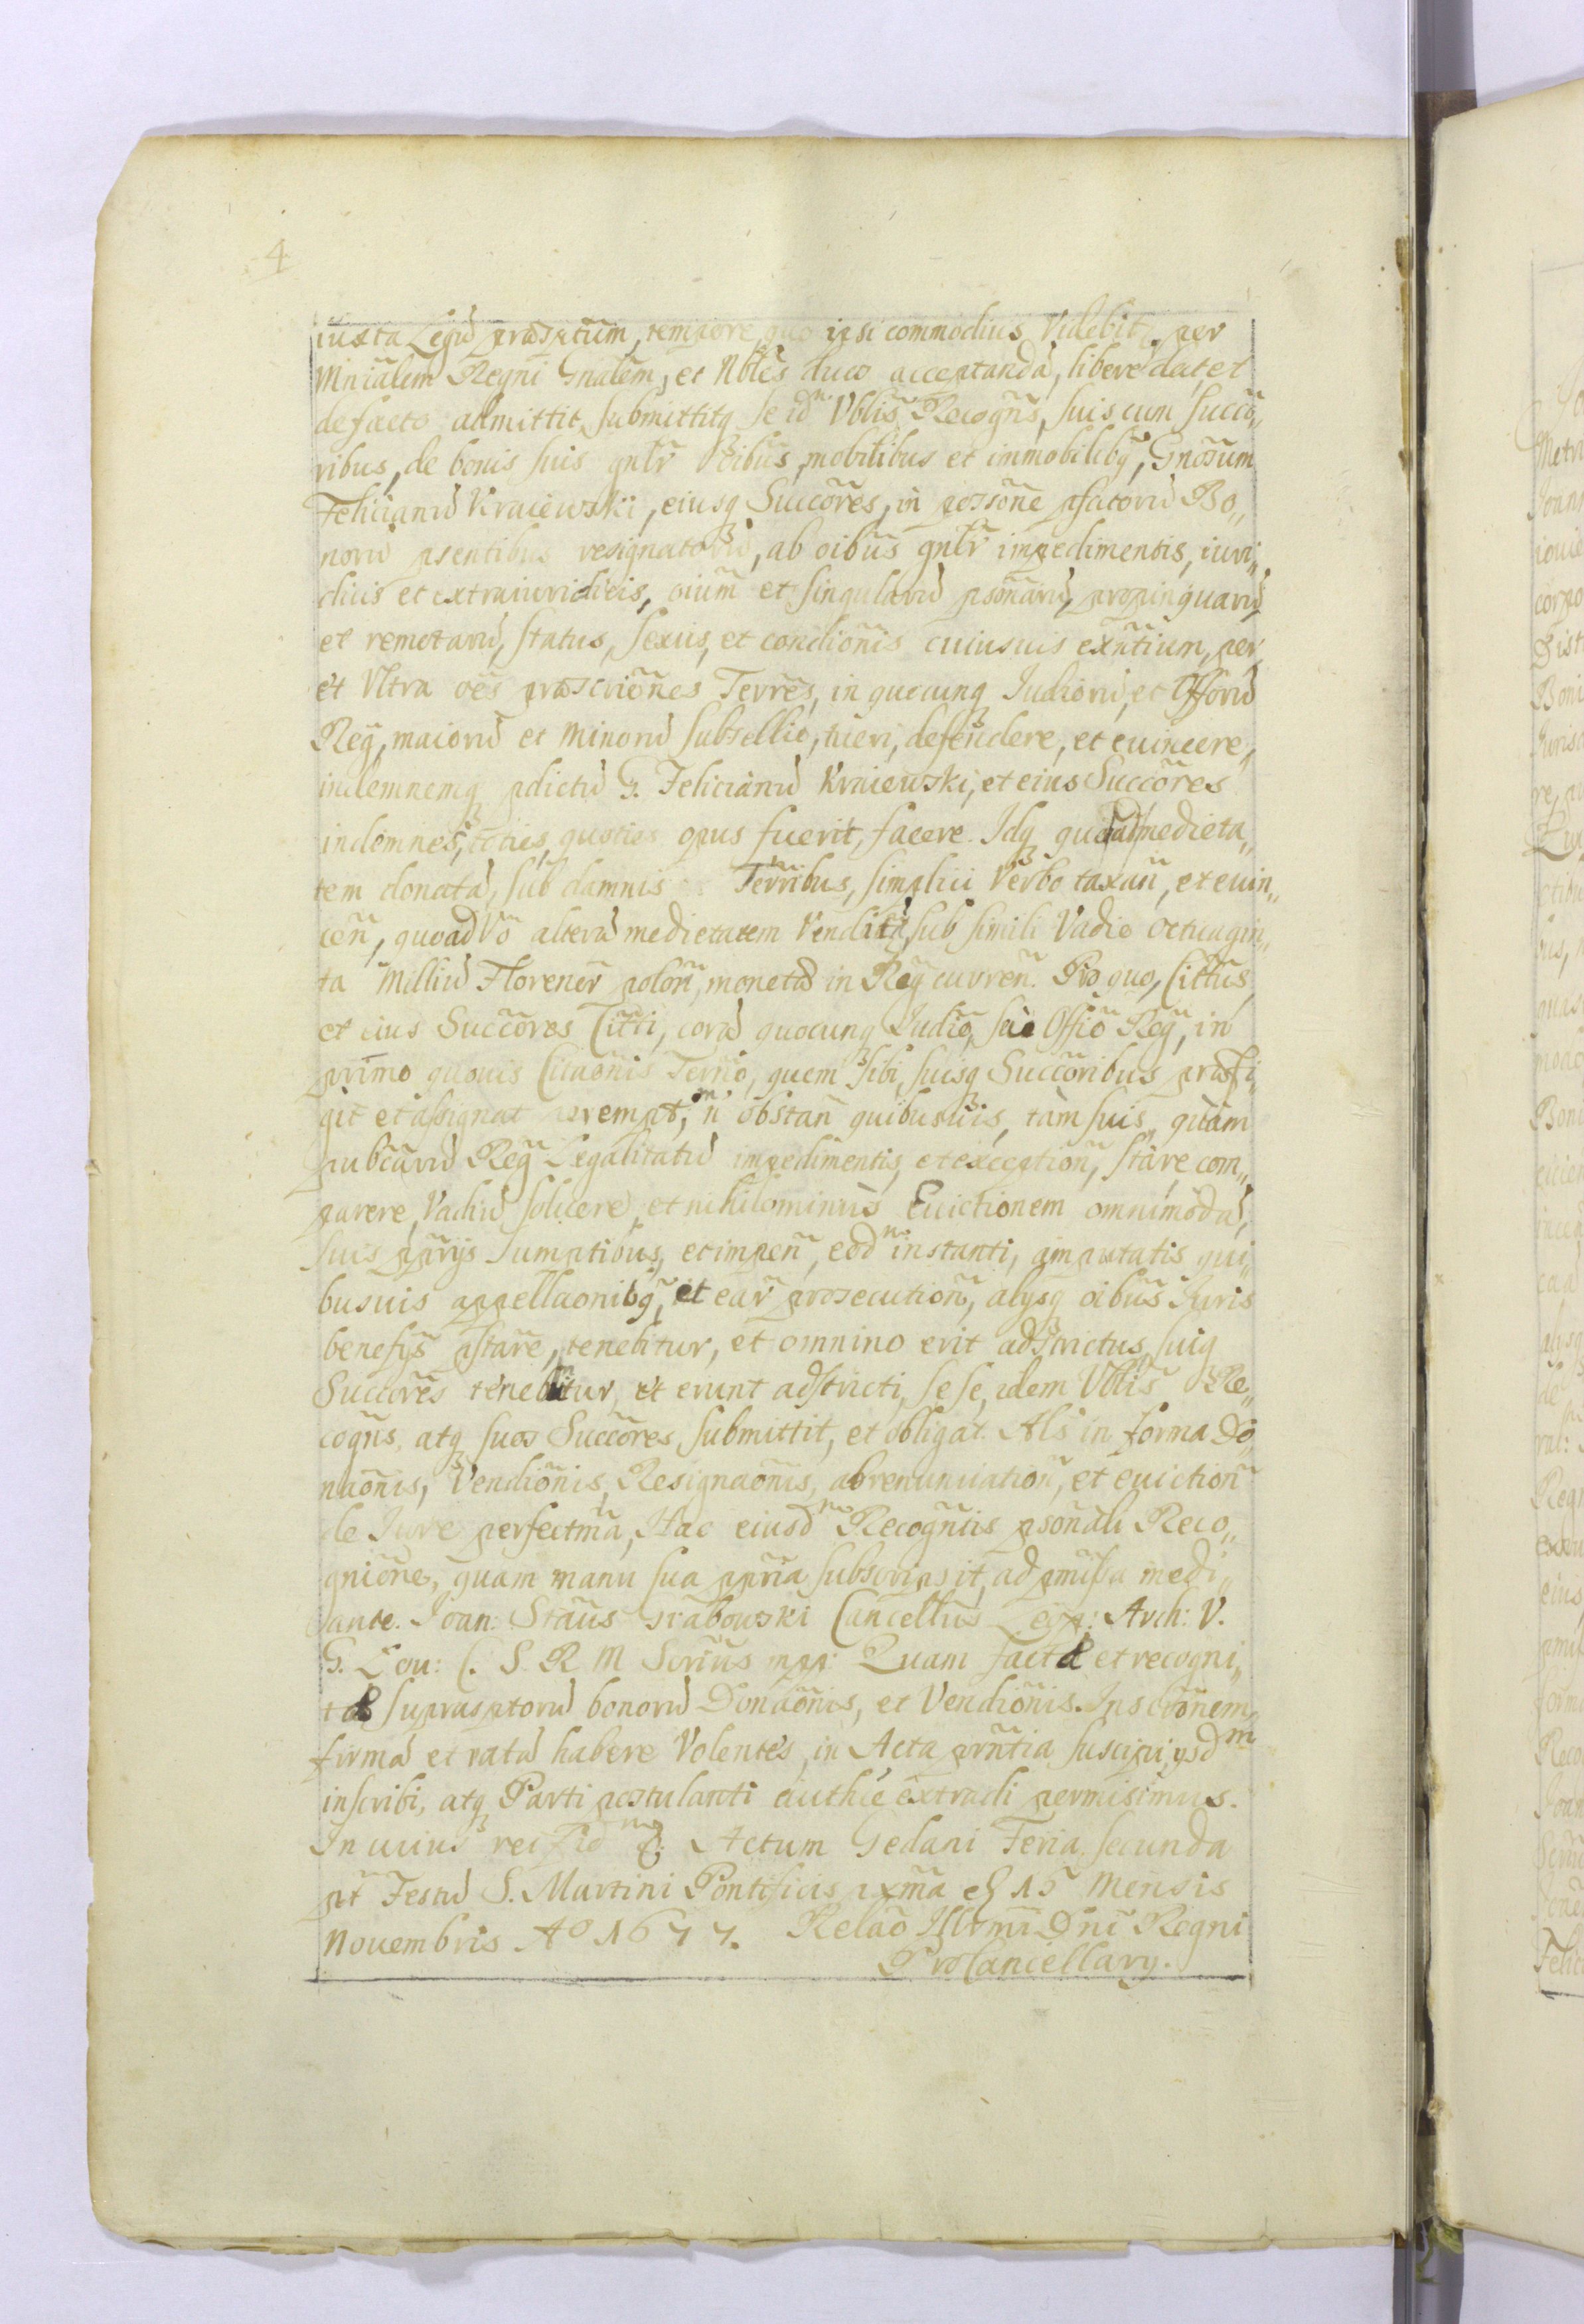 4
iuxta Legũ præscptum, tempore quo ipsi commodius Videbitr, per
Mnialem Regni Gnalem, et Nbles duos acceptandã, libere dat, et
de facto admittit, submittitq se idm Vblis Recogns, suis cum succo„
ribus, de bonis suis gnlr oibus, mobilibus et immobilibq, Gnosum
Felicianũ Kraiewski, eiusq Succores, in possone pfatorũ Bo„
norũ psentibus resignatorũ, ab oibus gnlr impedimentis, iuri„
dicis et extraiuridicis, oium et singularũ psonarũ, propinquarũ
et remotarũ, status, sexus, et condionis cuiusuis exntium, per
et Vltra oes præscriones Terres, in quocunq Judiorũ, et Offorũ
Reg, maiorũ et minorũ subsellio, tueri, defendere, et euincere,
indemnemq pdictũ G. Felicianũ Kraiewski, et eius Succores
indemnes, toties, quoties opus fuerit, facere. Idq quoad medieta„
tem donatã, sub damnis Terribus, simplici Verbo taxañ, et euin„
ceñ, quoad Vo alterã medietatem Venditã, sub simili Vadio octuagin„
ta Milliũ Florenor poloñ, monetæ in Reg curreñ. Pro quo, Cittus,
et eius Succores Citti, corã quocunq Judio, seu Offio Reg, in
primo quouis Citaonis Terrno, quem sibi, suisq Succoribus præfi„
git et assignat perempt, ñ obstañ quibusuis, tam suis, quam
pubcarũ Reg Legalitatũ impedimentis, et exceptioñ, stare, com„
parere, Vadiũ soluere, et nihilominus Euictionem omnimodã,
suis pprijs sumptibus, et impeñ, eodm instanti, amputatis qui„
busuis appellaonibq, et ear prosecutioñ, alijsq oibus Juris
benefijs pstare, tenebitur, et omnino erit adstrictus, suiq
Succores tenebntur, et erunt adstricti, sese, idem Vblis Re„
cogns, atq suos Succores, submittit, et obligat. Als in forma Do„
naonis, Vendionis, Resignaonis, abrenunciatioñ, et euictioñ
de Jure perfectma, Hac eiusdm Recogntis psonali Reco„
gnione, quam manu sua ppria subscripsit, ad pmissa medi„
ante. Joan: Staus Grabowski Cancellus Leop: Arch: V.
G. Leou: C. S. R M Scrius mpp: Quam factæ et recogni„
tæ supraspptorũ bonorũ Donaonis, et Vendionis. Inscronem
firmã et ratã habere Volentes, in Acta prntia suscipi, ijsdm
inscribi, atq Parti postulanti authce extradi permisimus.
In cuius rei fidm &. Actum Gedani Feria secunda
pt Festũ S. Martini Pontificis pxma 15 mensis
Nouembris Ao 1677. Relao Illrmi Dni Regni
ProCancellary.